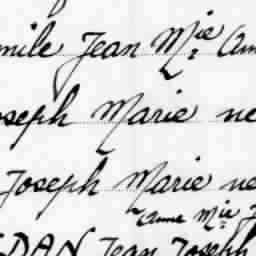 mile Jean Mie Am
oseph Marie ne
Joseph Marie ne
Anne Mie J
DAN Jean Joseph